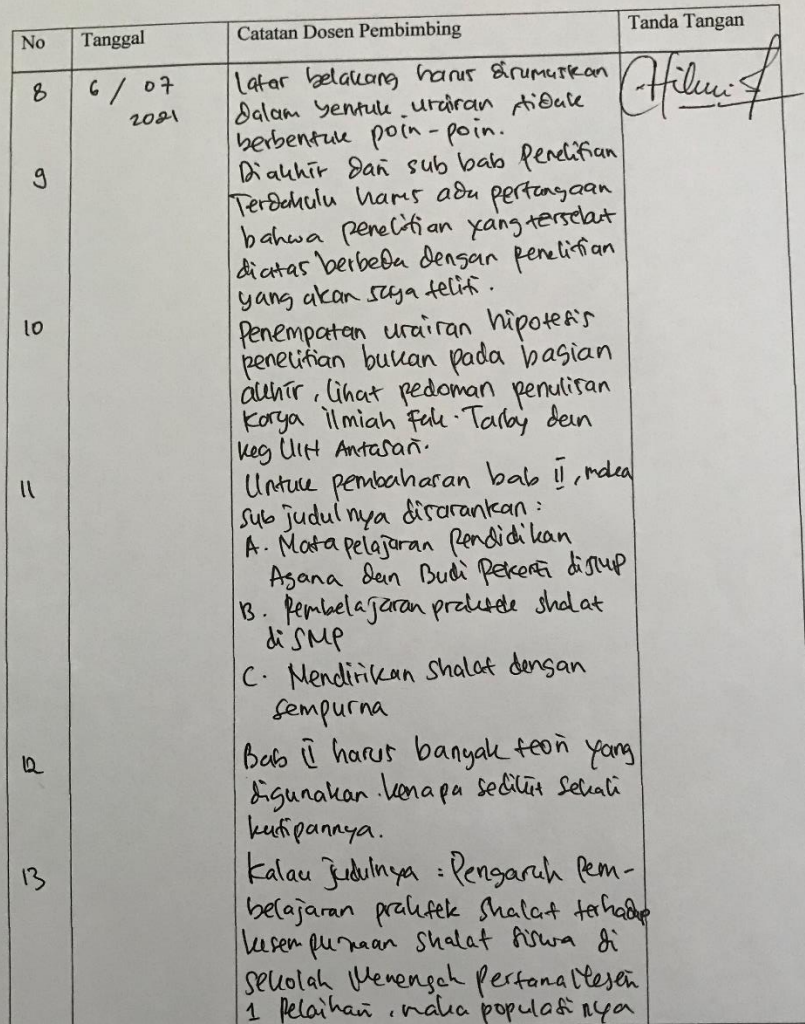 No Tanggal Catatan Dosen Pembimbing Tanda Tangan
8 6 / 07 Latar belakang harus dirumuskan
2021 dalam bentuk uraian tidak
berbentuk poin-poin.
9 Diakhir dari sub bab Penelitian
Terdahulu harus ada pertanyaan
bahwa penelitian yang tersebut
diatas berbeda dengan penelitian
yang akan saya teliti.
10 Penempatan uraian hipotesis
penelitian bukan pada bagian
akhir, lihat pedoman penulisan
Karya ilmiah Fak. Tarby dan
keg UIN Antasari.
11 Untuk pembahasan bab II, maka
sub judulnya disarankan :
A. Mata pelajaran Pendidikan
Agama dan Budi Pekerti di SMP
B. Pembelajaran praktek shalat
di SMP
C. Mendirikan shalat dengan
sempurna
12 Bab II harus banyak teori yang
digunakan. kenapa sedikit sekali
kutipannya.
13 Kalau judulnya : Pengaruh Pem-
belajaran praktek shalat terhadap
kesempurnaan shalat siswa di
sekolah Menengah Pertama
1 Pelaihari, maka populasinya